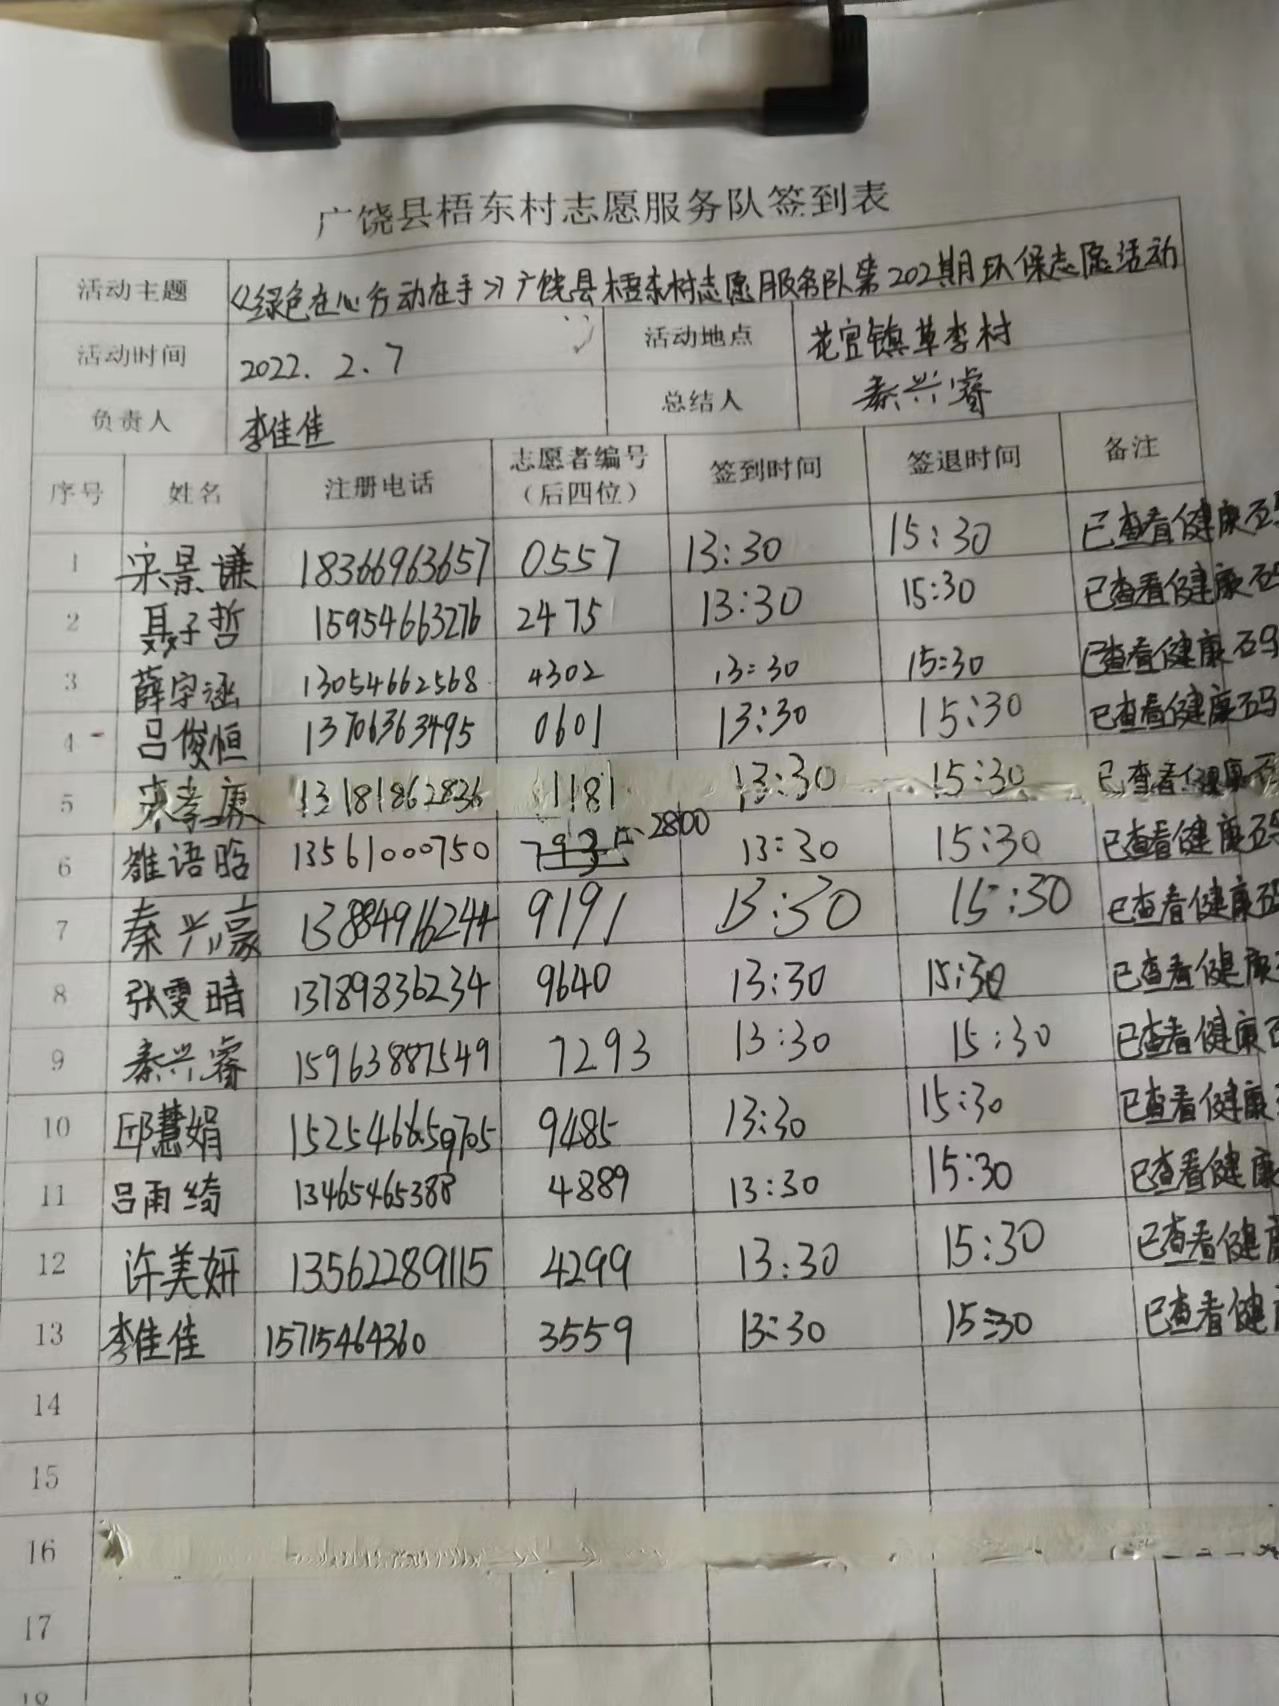 广饶县梧东村志愿服务队签到表
活动主题 《绿色在心行动在手》广饶县梧东村志愿服务队第202期月环保志愿活动
活动时间 2022.2.7 活动地点 花官镇草李村
负责人 李佳佳 总结人 秦兴睿
序号 姓名 注册电话 志愿者编号（后四位） 签到时间 签退时间 备注
1 宋景谦 18366963657 0557 13:30 15:30 已查看健康码
2 聂子哲 15954663276 2475 13:30 15:30 已查看健康码
3 薛宇涵 13054662568 4302 13:30 15:30 已查看健康码
4 吕俊恒 13706363495 0601 13:30 15:30 已查看健康码
5 宋孝康 13181862836 1181 13:30 15:30 已查看健康
6 雒语晗 13561000750 2800 13:30 15:30 已查看健康码
7 秦兴豪 13884916244 9191 13:30 15:30 已查看健康码
8 张雯晴 13789836234 9640 13:30 15:30 已查看健康
9 秦兴睿 15963887549 7293 13:30 15:30 已查看健康
10 邱慧娟 9485 13:30 15:30 已查看健康
11 吕雨绮 13465465388 4889 13:30 15:30 已查看健康
12 许美妍 13562289115 4299 13:30 15:30 已查看健康
13 李佳佳 15715464360 3559 13:30 15:30 已查看健
14
15
16
17
18